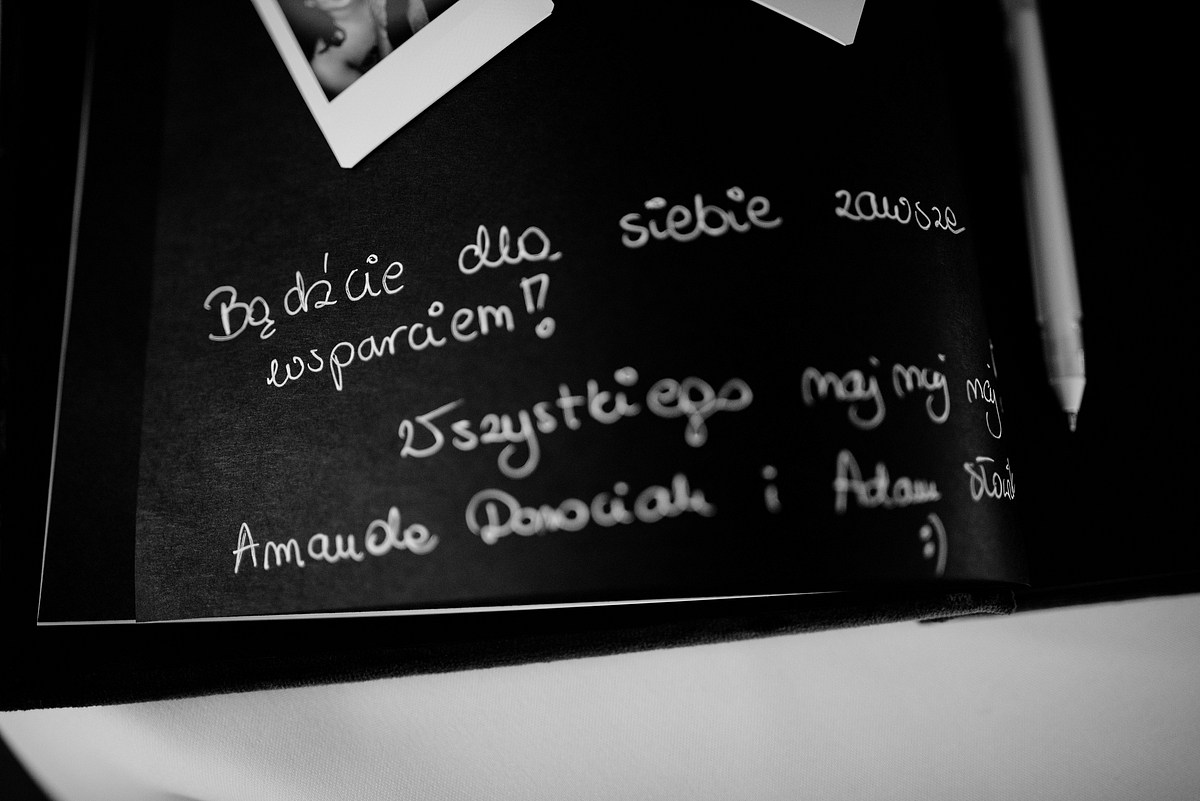 Bądźcie dla siebie zawsze
wsparciem!!
Wszystkiego naj naj naj!
Amanda i Adam
:)